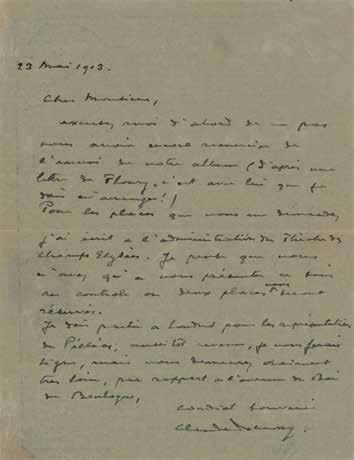 23 Mai 1913.
Cher Monsieur,
excusez moi d'abord de ne pas
vous avoir encore remercié de
l'envoi de votre album (d'après une
lettre de Floury, c'est avec lui que je
dois m'arranger!)
Pour les places que vous me demandez
j'ai écrit à l'administration du Théâtre des
Champs Elysées. Je pense que vous
n'avez qu'à vous présenter ce soir
au contrôle où deux places vous seront
réservées.
Je dois partir à Londres pour les représentations
de Pelléas; aussitôt revenu, je vous ferai
signe, mais vous demeurez vraiment
très loin, par rapport à l'avenue du Bois
de Boulogne,
Cordial souvenir
Claude Debussy